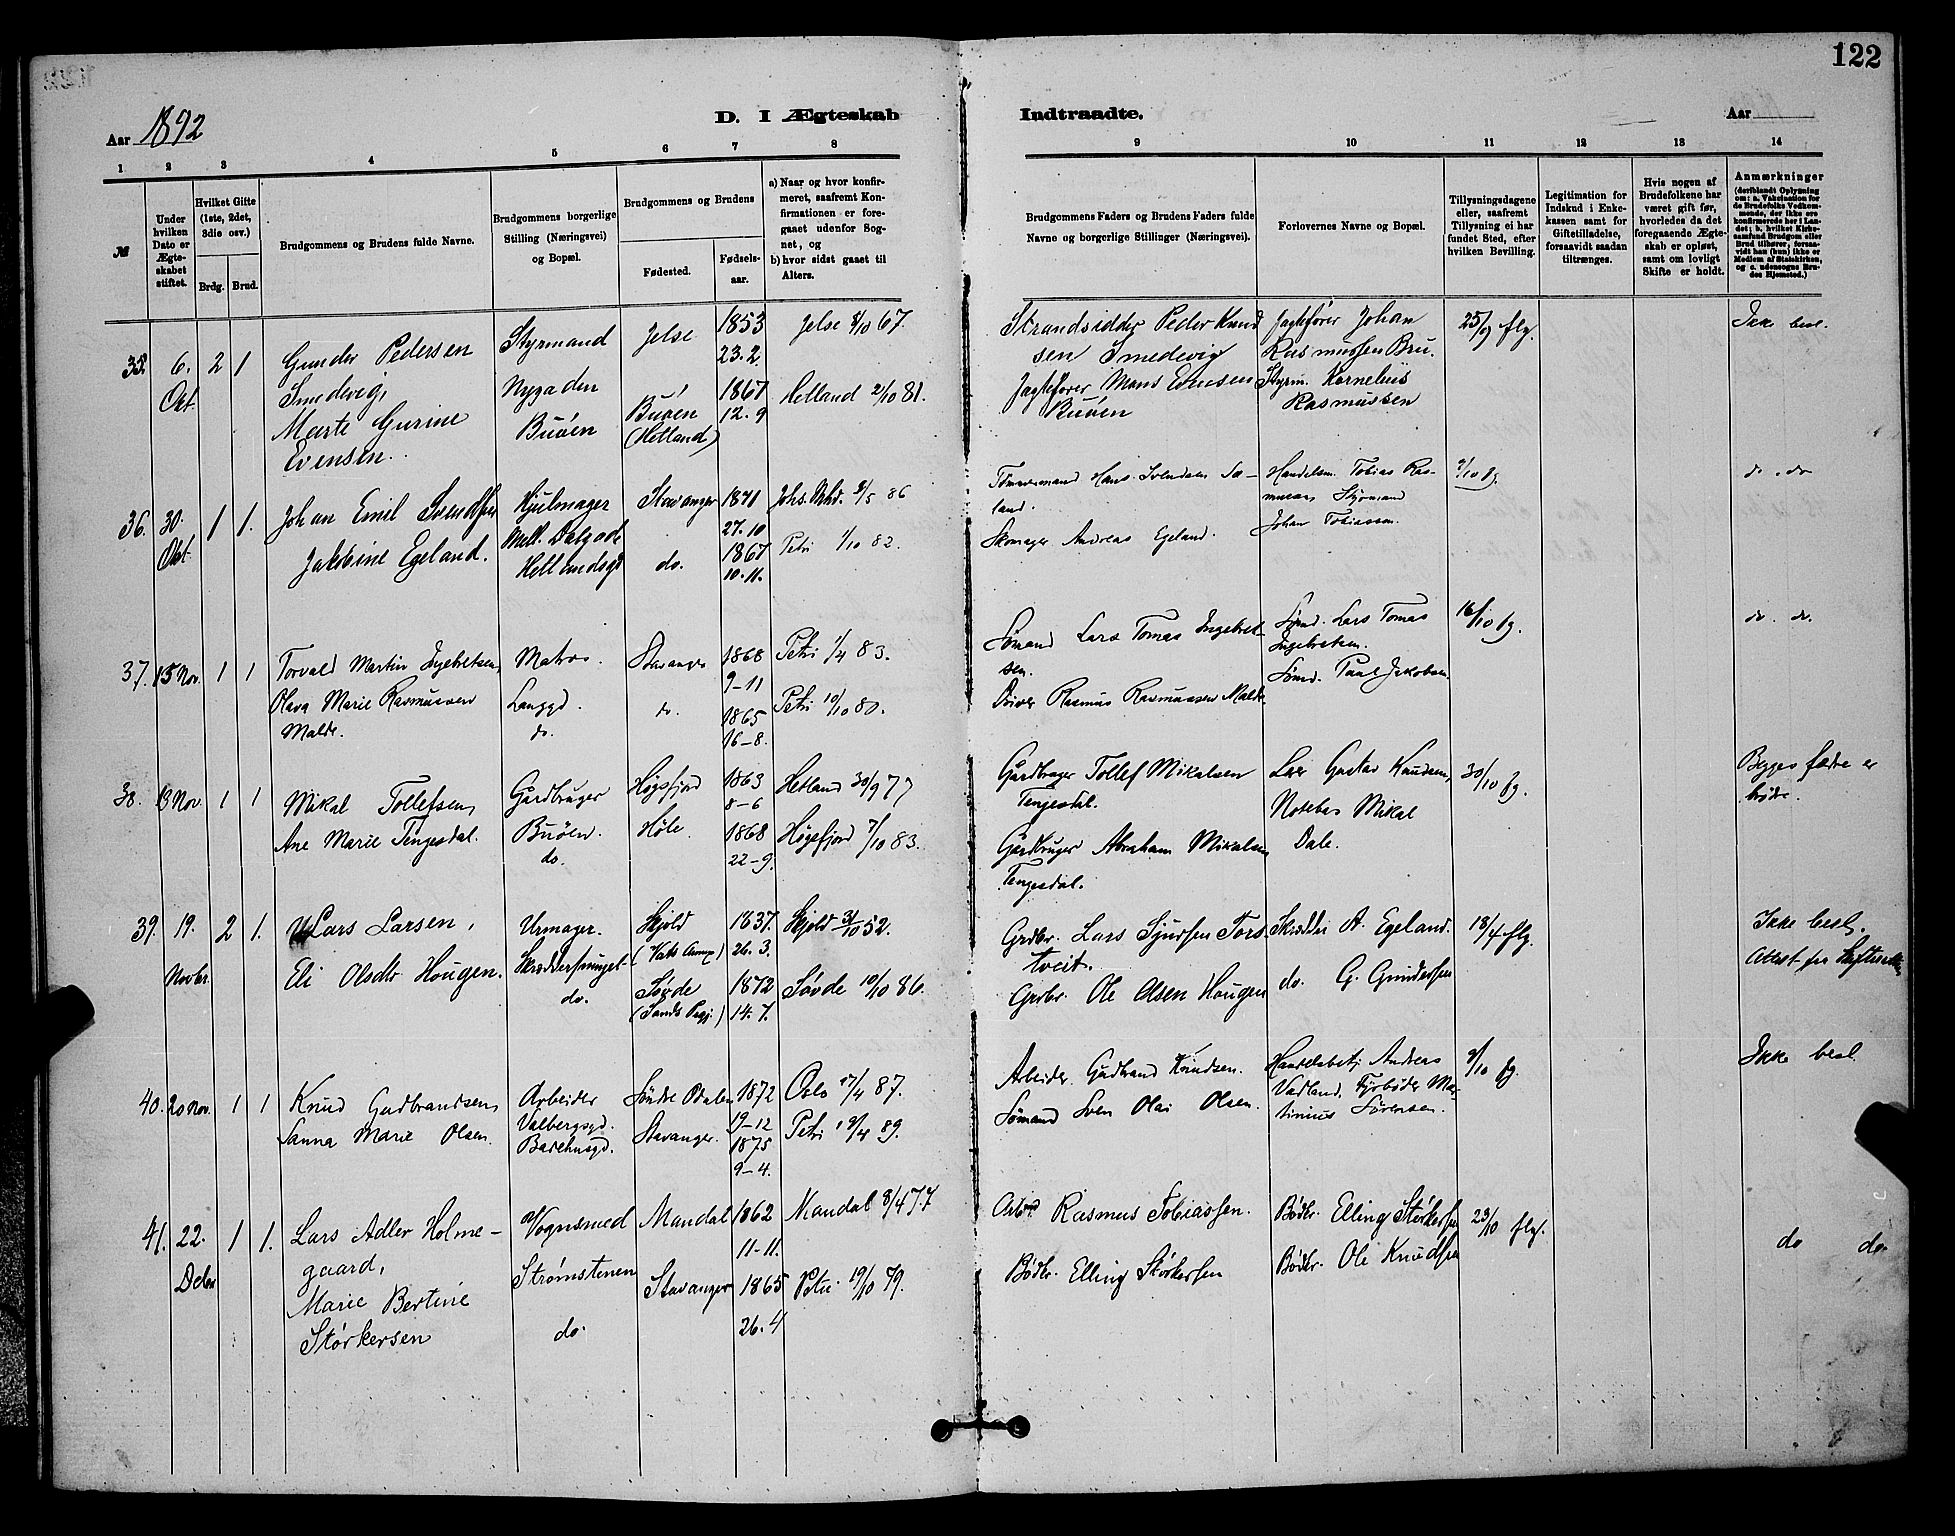 122
Aar 1892
D. I Ægteskab
Indtraadte.
Aar
1 2 3 4 5 6 7 8
9 10 11 12 13 14
№
Under hvilken Dato er Ægteskabet stiftet.
Hvilket Gifte (1ste, 2det, 3die osv.)
Brdg. Brud.
Brudgommens og Brudens fulde Navne.
Brudgommens borgerlige Stilling (Næringsvei) og Bopæl.
Brudgommens og Brudens
Fødested.
Fødselsaar.
a) Naar og hvor konfirmeret, saafremt Konfirmationen er foregaaet udenfor Sognet, og
b) hvor sidst gaaet til Alters.
Brudgommens Faders og Brudens Faders fulde Navne og borgerlige Stillinger (Næringsvei).
Forlovernes Navne og Bopæl.
Tillysningsdagene eller, saafremt Tillysning ei har fundet Sted, efter hvilken Bevilling.
Legitimation for Indskud i Enkekassen samt for Giftetilladelse, forsaavidt saadan tiltrænges.
Hvis nogen af Brudefolkene har været gift før, hvorledes da det foregaaende Ægteskab er opløst, samt om lovligt Skifte er holdt.
Anmærkninger
35. 6. Okt. 2 1
Gunder Pedersen
Smedvig,
Marte Gurine
Evensen.
Styrmand
Nygaden
Buøen
Jelse
Buøen
(Hetland)
1853
23.2
1867
12.9
Jelse 8/10 67.
Hetland 2/10 81.
Strandsidder Peder Knud
sen Smedevig
Jagtefører Mons Evensen
Buøen
Jagtefører Johan
Rasmussen Bru.
Styrm. Kornelius
Rasmussen
25/9 flg.
Ikke besl.
36. 30. Okt 1 1.
Johan Emil Svendsen
Jakobine Egeland.
Hjulmager
Hetlandsgd
Stavanger
do.
1841
27.10
1867
10.11.
Petri 1/10 82.
Tømmermand Hans Svendsen Sa-
land.
Skomager Andreas Egeland.
Handelsm. Tobias Ras-
mussen Styrmand
Johan Tobiassen.
9/10 fg.
do. do
37. 15 Nov. 1 1
Torvald Martin Ingebretsen,
Olava Marie Rasmussen
Malde.
Matros.
Langgd.
do.
Stavanger
do.
1868
9-11
1865
16-8.
Petri 1/4 83.
Petri 10/10 80.
Sømand Lars Tomas Ingebret-
sen.
Driver Rasmus Rasmussen Malde.
Sømd. Lars Tomas
Ingebretsen.
Sømd. Paul Jakobsen.
16/10 fg.
do. do.
38. 13 Nov. 1 1
Mikal Tollefsen,
Ane Marie Tengesdal.
Gardbruger
Buøen.
do.
Høgsfjord
Høle.
1863
8-6
1868
22-9.
Hetland 30/9 77
Høgsfjord 7/10 83.
Gardbruger Tollef Mikalsen
Tengesdal.
Gardbruger Abraham Mikalsen
Tengesdal.
Lær Gustav Knudsen,
Notebas Mikal
Dale.
30/10 fg.
Begges fædre er
brødre.
39. 19. Novbr. 2 1.
Lars Larsen,
Eli Olsdtr Hougen.
Urmager.
do.
Skjold
(Vats Annex)
Søvde
(Sands Prgj.)
1837.
26.3.
1872
14.7.
Skjold 31/10 52.
Søvde 10/10 86.
Grdbr. Lars Sjursen Tors-
tveit.
Grdbr. Ole Olsen Hougen
Skrædder A. Egeland.
do. G. Gundersen
18/4 flg.
Ikke besl.
Attest fra Skifteretten
40. 20 Nov. 1 1
Knud Gudbrandsen,
Sanna Marie Olsen.
Arbeider
Valbergsgd.
Barehusgd.
Søndre Odalen
Stavanger.
1872
19-12
1875
9-4.
Oslo 17/4 87.
Petri 19/4 89.
Arbeider Gudbrand Knudsen.
Sømand Sven Olai Olsen.
Handelsbetj. Andreas
Vadland, Fyrbøder Mar-
tinius Sørensen.
9/10 fg.
Ikke besl.
41. 22. Debr 1 1.
Lars Adler Holme-
gaard,
Marie Bertine
Størkersen
Vognsmed
Strømstenen
do.
Mandal
Stavanger
1862
11-11.
1865
26.4
Mandal 8/4 77
Petri 19/10 79.
Arbeid Rasmus Tobiassen.
Bødkr. Elling Størkersen
Bødkr. Elling Størkersen
Bødkr. Ole Knudsen
23/10 flg.
do do